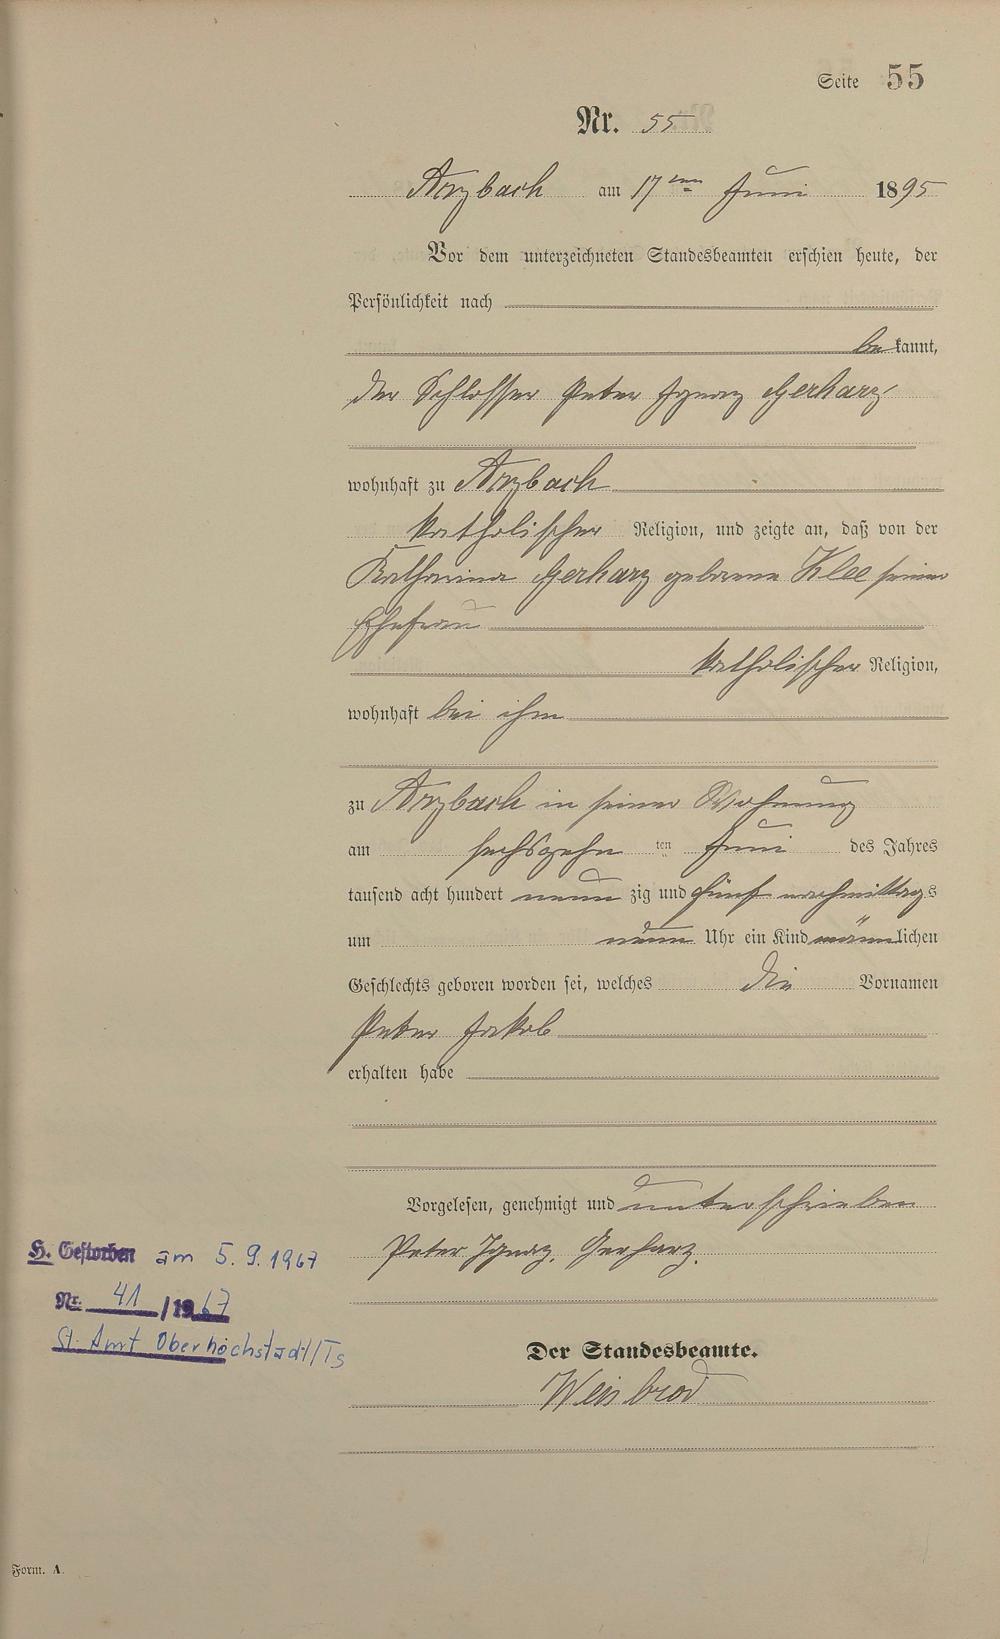 Seite 55
Nr. 55
Arzbach am 17ten Juni 1895
Vor dem unterzeichneten Standesbeamten erschien heute, der
Persönlichkeit nach
bekannt,
der Schlosser Peter Ignaz Gerharz
wohnhaft zu Arzbach
katholischer Religion, und zeigte an, daß von der
Katharina Gerharz geborene Klee seiner
Ehefrau
katholischer Religion,
wohnhaft bei ihm
zu Arzbach in seiner Wohnung
am sechszehn ten Juni des Jahres
tausend acht hundert neun zig und fünf nachmittags
um neun Uhr ein Kind männlichen
Geschlechts geboren worden sei, welches die Vornamen
Peter Jakob
erhalten habe
Vorgelesen, genehmigt und unterschrieben
Peter Ignaz Gerharz.
H. Gestorben am 5.9.1967
Nr. 41/1967
St. Amt Oberhöchstadt/Ts
Der Standesbeamte.
Weinbrod
Form. A.